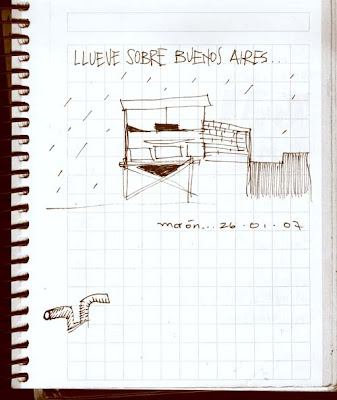 LLUEVE SOBRE BUENOS AIRES...
morón... 26.01.07